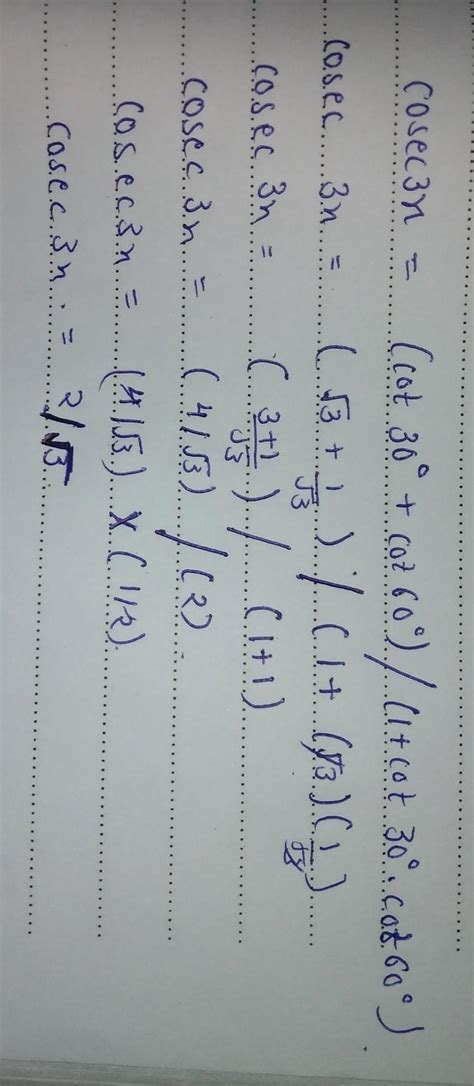 cosec3x = (cot 30° + cot 60°) / (1 + cot 30° . cot 60°)
cosec 3x = (√3 + 1/√3) / (1 + (√3)(1/√3)
cosec 3x = (3+1/√3) / (1+1)
cosec 3x = (4/√3) / (2)
cosec3x = (4/√3) × (1/2)
cosec 3x = 2/√3